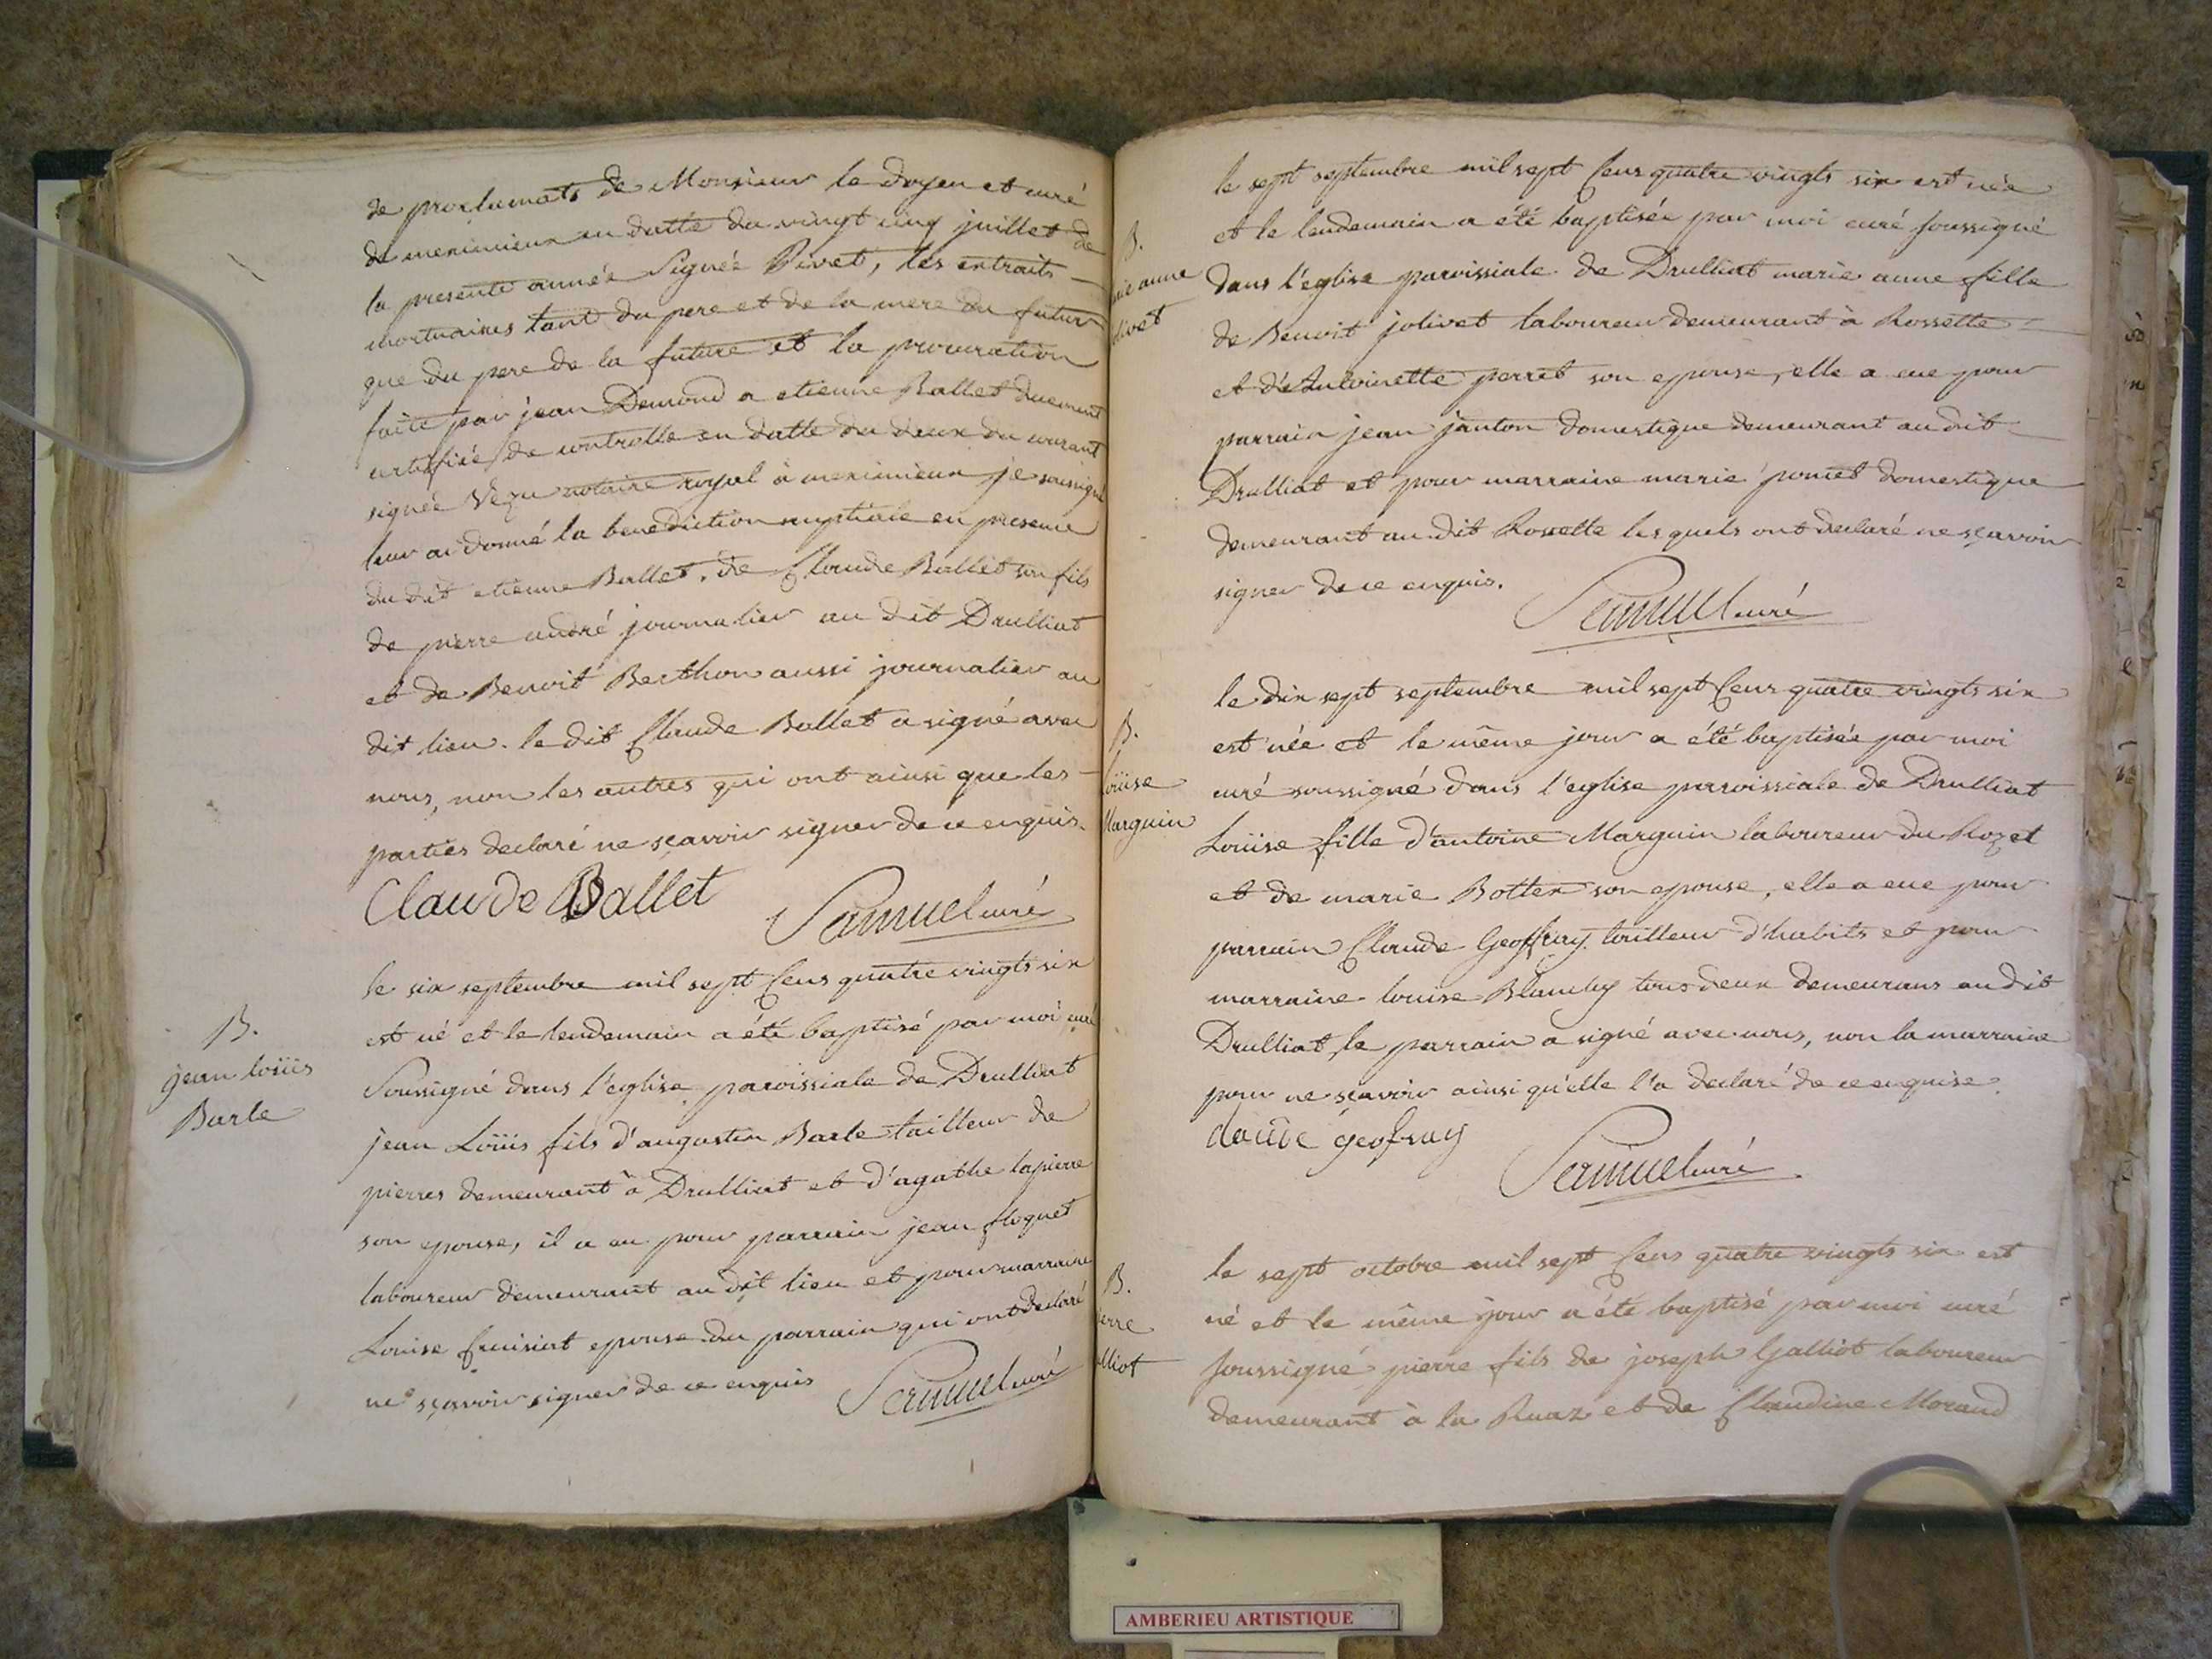 de proclamats de Monsieur le doyen et curé
de meximieux en datte du vingt cinq juillet de
la presente année Signée Rivet, les extraits
mortuaires tant du pere et de la mere du futur
que du pere de la future et la procuration
faite par jean Demond a etienne Ballet duement
certifiée de controlle en datte du deux du courant
signée notaire royal à meximieux je soussigné
leur ai donné la benediction nuptiale en presence
du dit etienne Ballet, de Claude Ballet son fils
de pierre andré journalier au dit Drulliat
et de Benoit Berthon aussi journalier au
dit lieu. le dit Claude Ballet a signé avec
nous, non les autres qui ont ainsi que les
parties declaré ne sçavoir signer de ce enquis.
Claude Ballet
Samuel curé
B.
jean loüis
Barle
le six septembre mil sept Cens quatre vingts six
est né et le lendemain a été baptisé par moi curé
Soussigné dans l'eglise paroissiale de Drulliat
jean Loüis fils d'augustin Barle tailleur de
pierres demeurant à Drulliat et d'agathe lapierre
son epouse, il a eu pour parrain jean floquet
laboureur demeurant au dit lieu et pour marraine
Louise epouse du parrain qui ont declaré
ne sçavoir signer de ce enquis
Samuel curé
B.
rie anne
olivet
le sept septembre mil sept Cens quatre vingts six est née
et le lendemain a été baptisée par moi curé soussigné
dans l'eglise paroissiale de Drulliat marie anne fille
de Benoit jolivet laboureur demeurant à Rossette
et d'Antoinette perret son epouse, elle a eue pour
parrain jean janton domestique demeurant au dit
Drulliat et pour marraine marie poncet domestique
demeurant au dit Rossette lesquels ont declaré ne sçavoir
signer de ce enquis.
Samuel curé
B.
oüise
Marguin
le dix sept septembre mil sept Cens quatre vingts six
est née et le même jour a été baptisée par moi
curé soussigné dans l'eglise paroissiale de Drulliat
Loüise fille d'antoine Marguin laboureur du Rozet
et de marie Bottex son epouse, elle a eue pour
parrain Claude Geoffray tailleur d'habits et pour
marraine louise Blanchy tous deux demeurans au dit
Drulliat, le parrain a signé avec nous, non la marraine
pour ne sçavoir ainsi qu'elle l'a declaré de ce enquise.
claude geofray
Samuel curé
B.
ierre
alliot
le sept octobre mil sept Cens quatre vingts six est
né et le même jour a été baptisé par moi curé
soussigné pierre fils de joseph Galliot laboureur
demeurant à la Ruaz et de Claudine Morand
AMBERIEU ARTISTIQUE